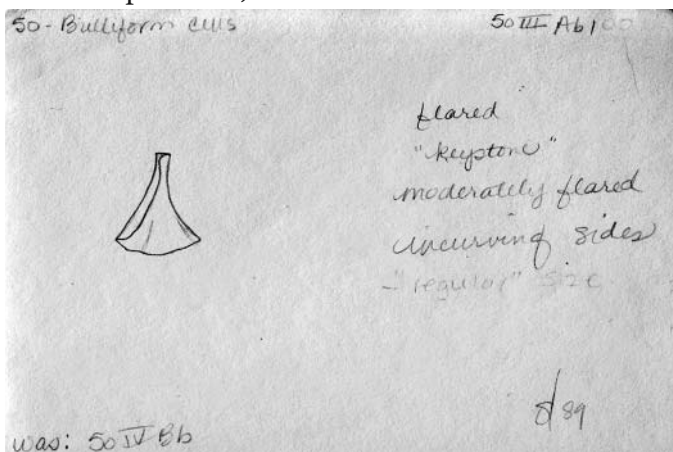 50 - Bulliform cells
50 III Ab 100
flared
"keystone"
moderately flared
incurving sides
- "regular" size
8/89
was: 50 IV Bb